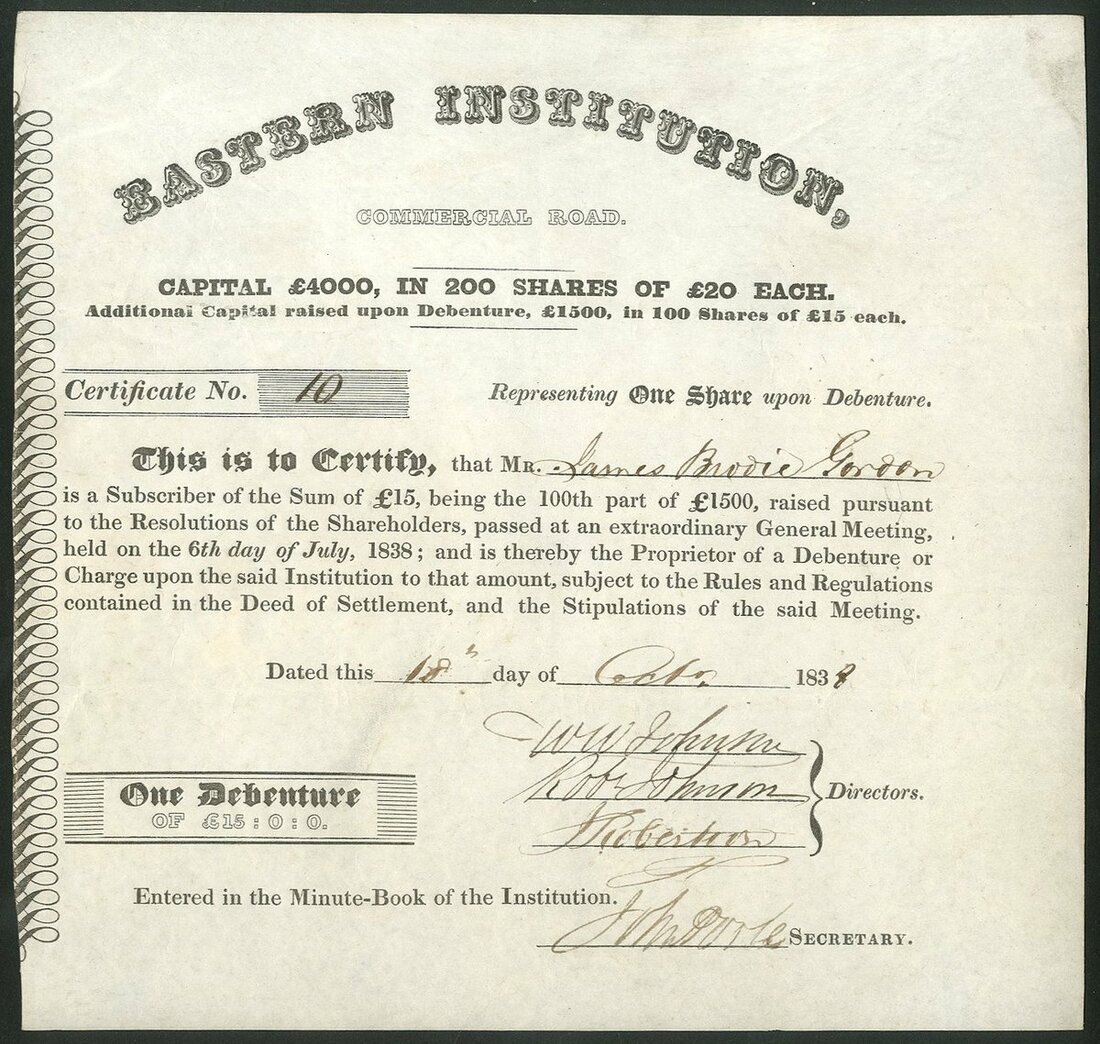 EASTERN INSTITUTION,
COMMERCIAL ROAD.
CAPITAL £4000, IN 200 SHARES OF £20 EACH.
Additional Capital raised upon Debenture, £1500, in 100 Shares of £15 each.
Certificate No. 10
Representing One Share upon Debenture.
This is to Certify, that MR. James Brodie Gordon
is a Subscriber of the Sum of £15, being the 100th part of £1500, raised pursuant
to the Resolutions of the Shareholders, passed at an extraordinary General Meeting,
held on the 6th day of July, 1838; and is thereby the Proprietor of a Debenture or
Charge upon the said Institution to that amount, subject to the Rules and Regulations
contained in the Deed of Settlement, and the Stipulations of the said Meeting.
Dated this 18th day of 1838
WW Johnson
Robt Johnson
Directors.
J Robertson
One Debenture
OF £15:0:0.
Entered in the Minute-Book of the Institution.
John SECRETARY.